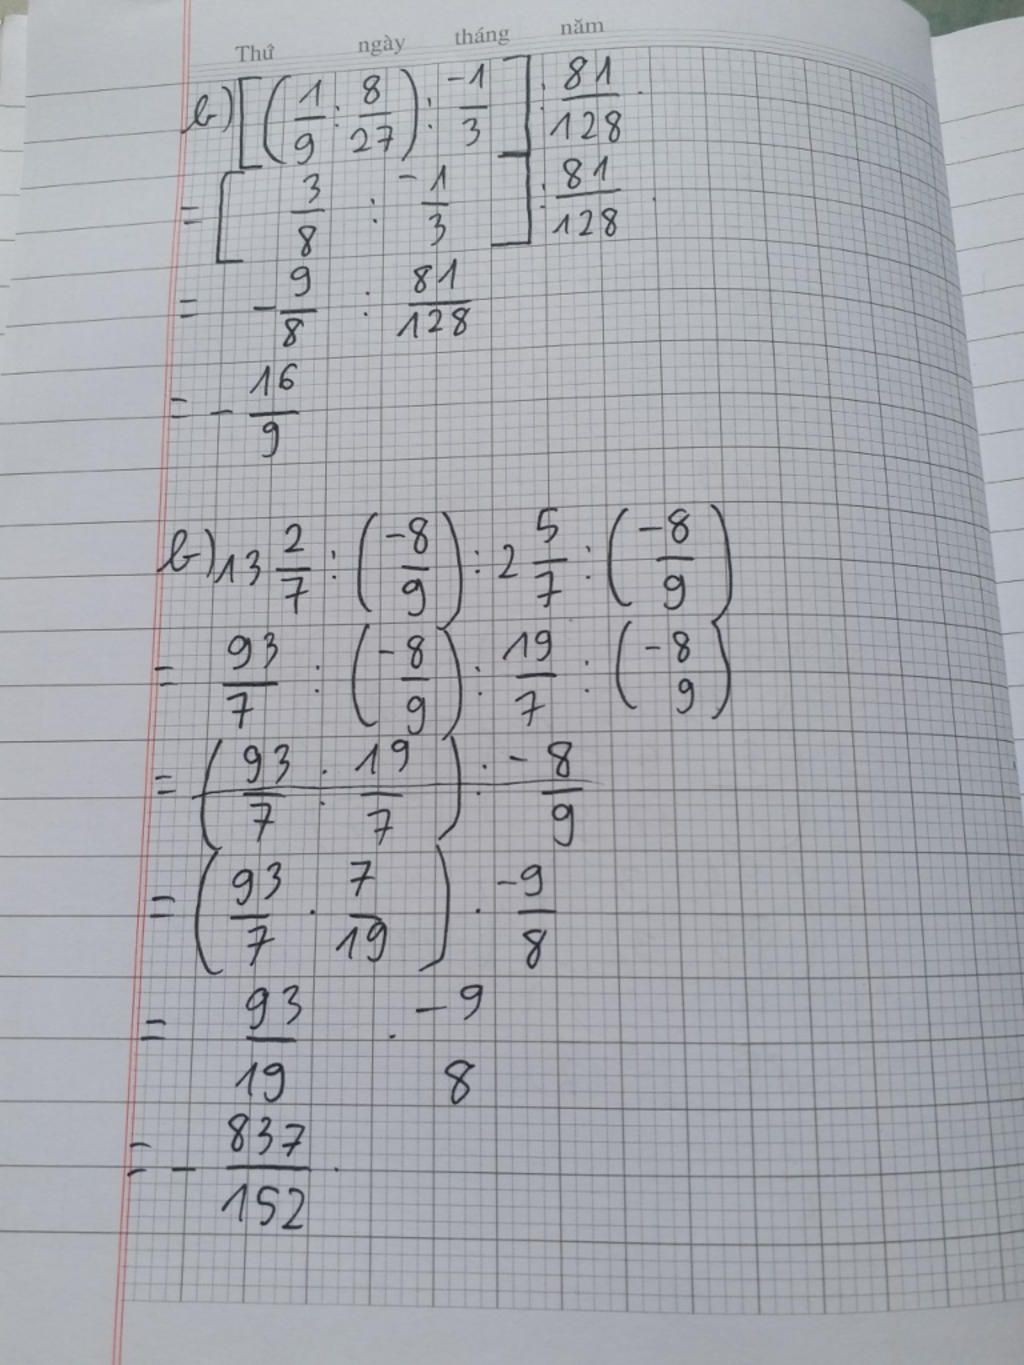 Thứ ngày tháng năm
b) [(1/9 : 8/27) : -1/3] : 81/128
= [3/8 : -1/3] : 81/128
= -9/8 : 81/128
= -16/9
b) 13 2/7 : (-8/9) : 2 5/7 : (-8/9)
= 93/7 : (-8/9) : 19/7 : (-8 9)
= (93/7 : 19/7) : -8/9
= (93/7 . 7/19) . -9/8
= 93/19 . -9 8
= -837/152.